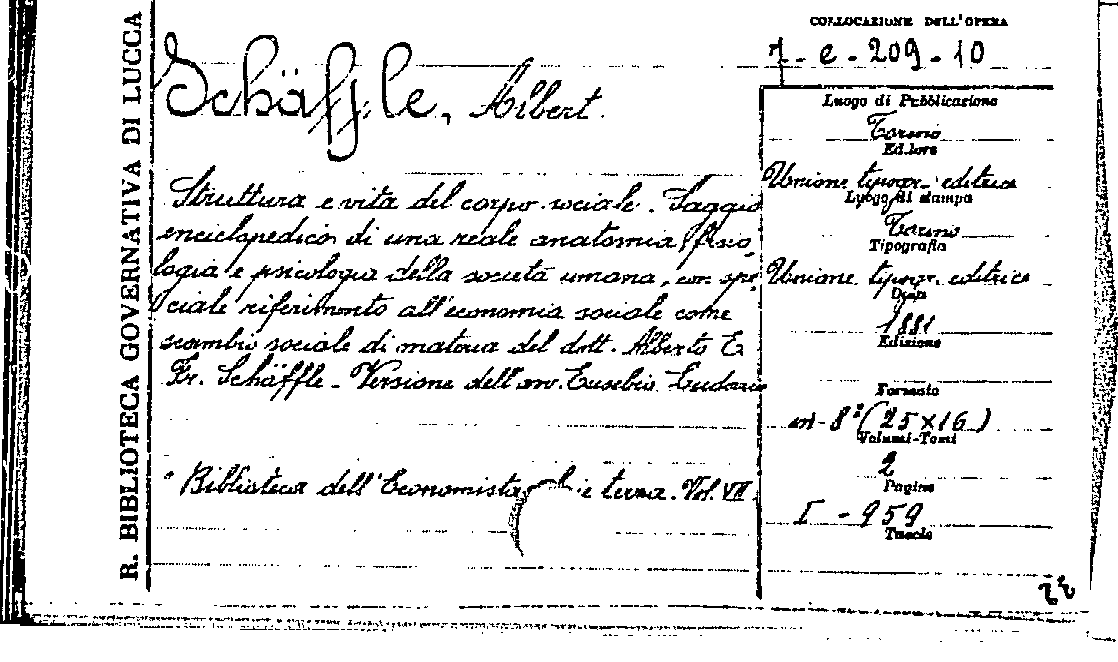 R. BIBLIOTECA GOVERNATIVA DI LUCCA
COLLOCAZIONE DELL'OPERA
7 - e - 209 - 10
Schäffle, Albert.
Struttura e vita del corpo sociale. Saggio
enciclopedico di una reale anatomia, fisio
logia e psicologia della società umana, con spe
ciale riferimento all'economia sociale come
scambio sociale di materia del dott. Alberto E.
Fr. Schäffle - Versione dell'avv. Eusebio
Biblioteca dell'Economista ie terza. Vol. VII
Luogo di Pubblicazione
Torino
Editore
Unione tipogr. editrice
Luogo di stampa
Torino
Tipografia
Unione tipogr. editrice
Data
1881
Edizione
Formato
in-8° (25x16)
Volumi-Tomi
2
Pagine
I - 959
Tavole